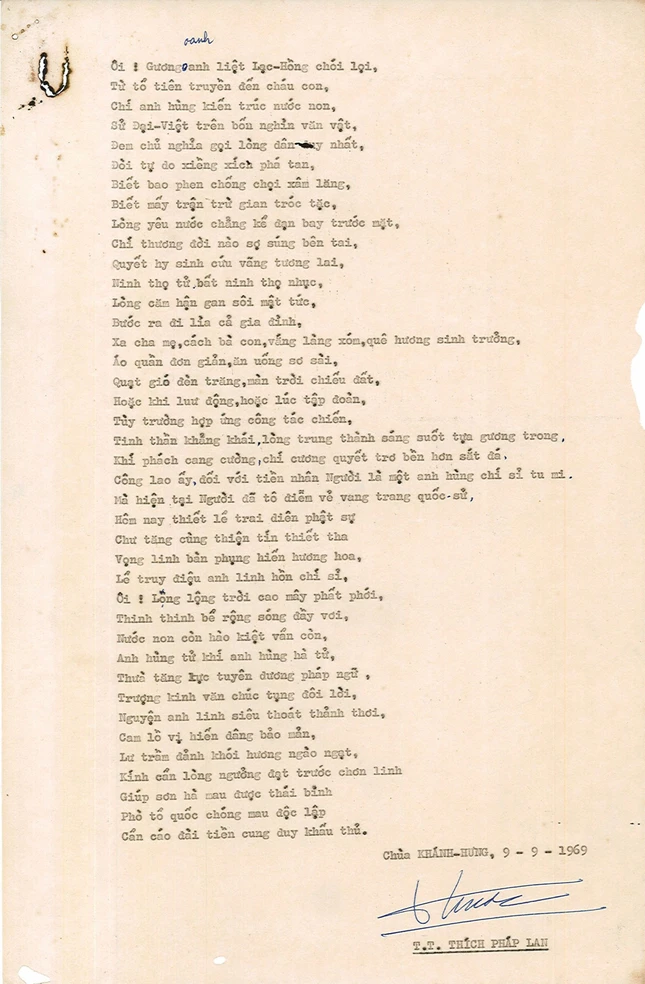 oanh
Ôi ! Gương oanh liệt Lạc-Hồng chói lọi,
Từ tổ tiên truyền đến cháu con,
Chí anh hùng kiến trúc nước non,
Sử Đại-Việt trên bốn nghìn văn vật,
Đem chủ nghĩa gọi lòng dân duy nhất,
Đòi tự do xiềng xích phá tan,
Biết bao phen chống chọi xâm lăng,
Biết mấy trận trừ gian tróc tặc,
Lòng yêu nước chẳng kể đạn bay trước mặt,
Chí thương đời nào sợ súng bên tai,
Quyết hy sinh cứu vãng tương lai,
Ninh thọ tử bất ninh thọ nhục,
Lòng căm hận gan sôi mật tức,
Bước ra đi lìa cả gia đình,
Xa cha mẹ,cách bà con,vắng làng xóm,quê hương sinh trưởng,
Áo quần đơn giản,ăn uống sơ sài,
Quạt gió đèn trăng,màn trời chiếu đất,
Hoặc khi lưu động,hoặc lúc tập đoàn,
Tùy trường hợp ứng công tác chiến,
Tinh thần khẳng khái,lòng trung thành sáng suốt tựa gương trong,
Khí phách cang cường,chí cương quyết trơ bền hơn sắt đá.
Công lao ấy,đối với tiền nhân Người là một anh hùng chí sĩ tu mi.
Mà hiện tại Người đã tô điểm vẻ vang trang quốc-sử,
Hôm nay thiết lể trai diên phật sự
Chư tăng cùng thiện tín thiết tha
Vọng linh bàn phụng hiến hương hoa,
Lể truy điệu anh linh hồn chí sĩ,
Ôi ! Lồng lộng trời cao mây phất phới,
Thinh thinh bể rộng sóng đầy vơi,
Nước non còn hào kiệt vẩn còn,
Anh hùng tử khí anh hùng hà tử,
Thưà tăng lực tuyên dương pháp ngữ ,
Trượng kinh văn chúc tụng đôi lời,
Nguyện anh linh siêu thoát thảnh thơi,
Cam lồ vị hiến dâng bảo mản,
Lư trầm đảnh khói hương ngào ngạt,
Kính cẩn lòng ngưởng đạt trước chơn linh
Giúp sơn hà mau được thái bình
Phò tổ quốc chóng mau độc lập
Cẩn cáo đài tiền cung duy khấu thủ.
Chùa KHÁNH-HƯNG, 9 - 9 - 1969
T.T. THÍCH PHÁP LAN